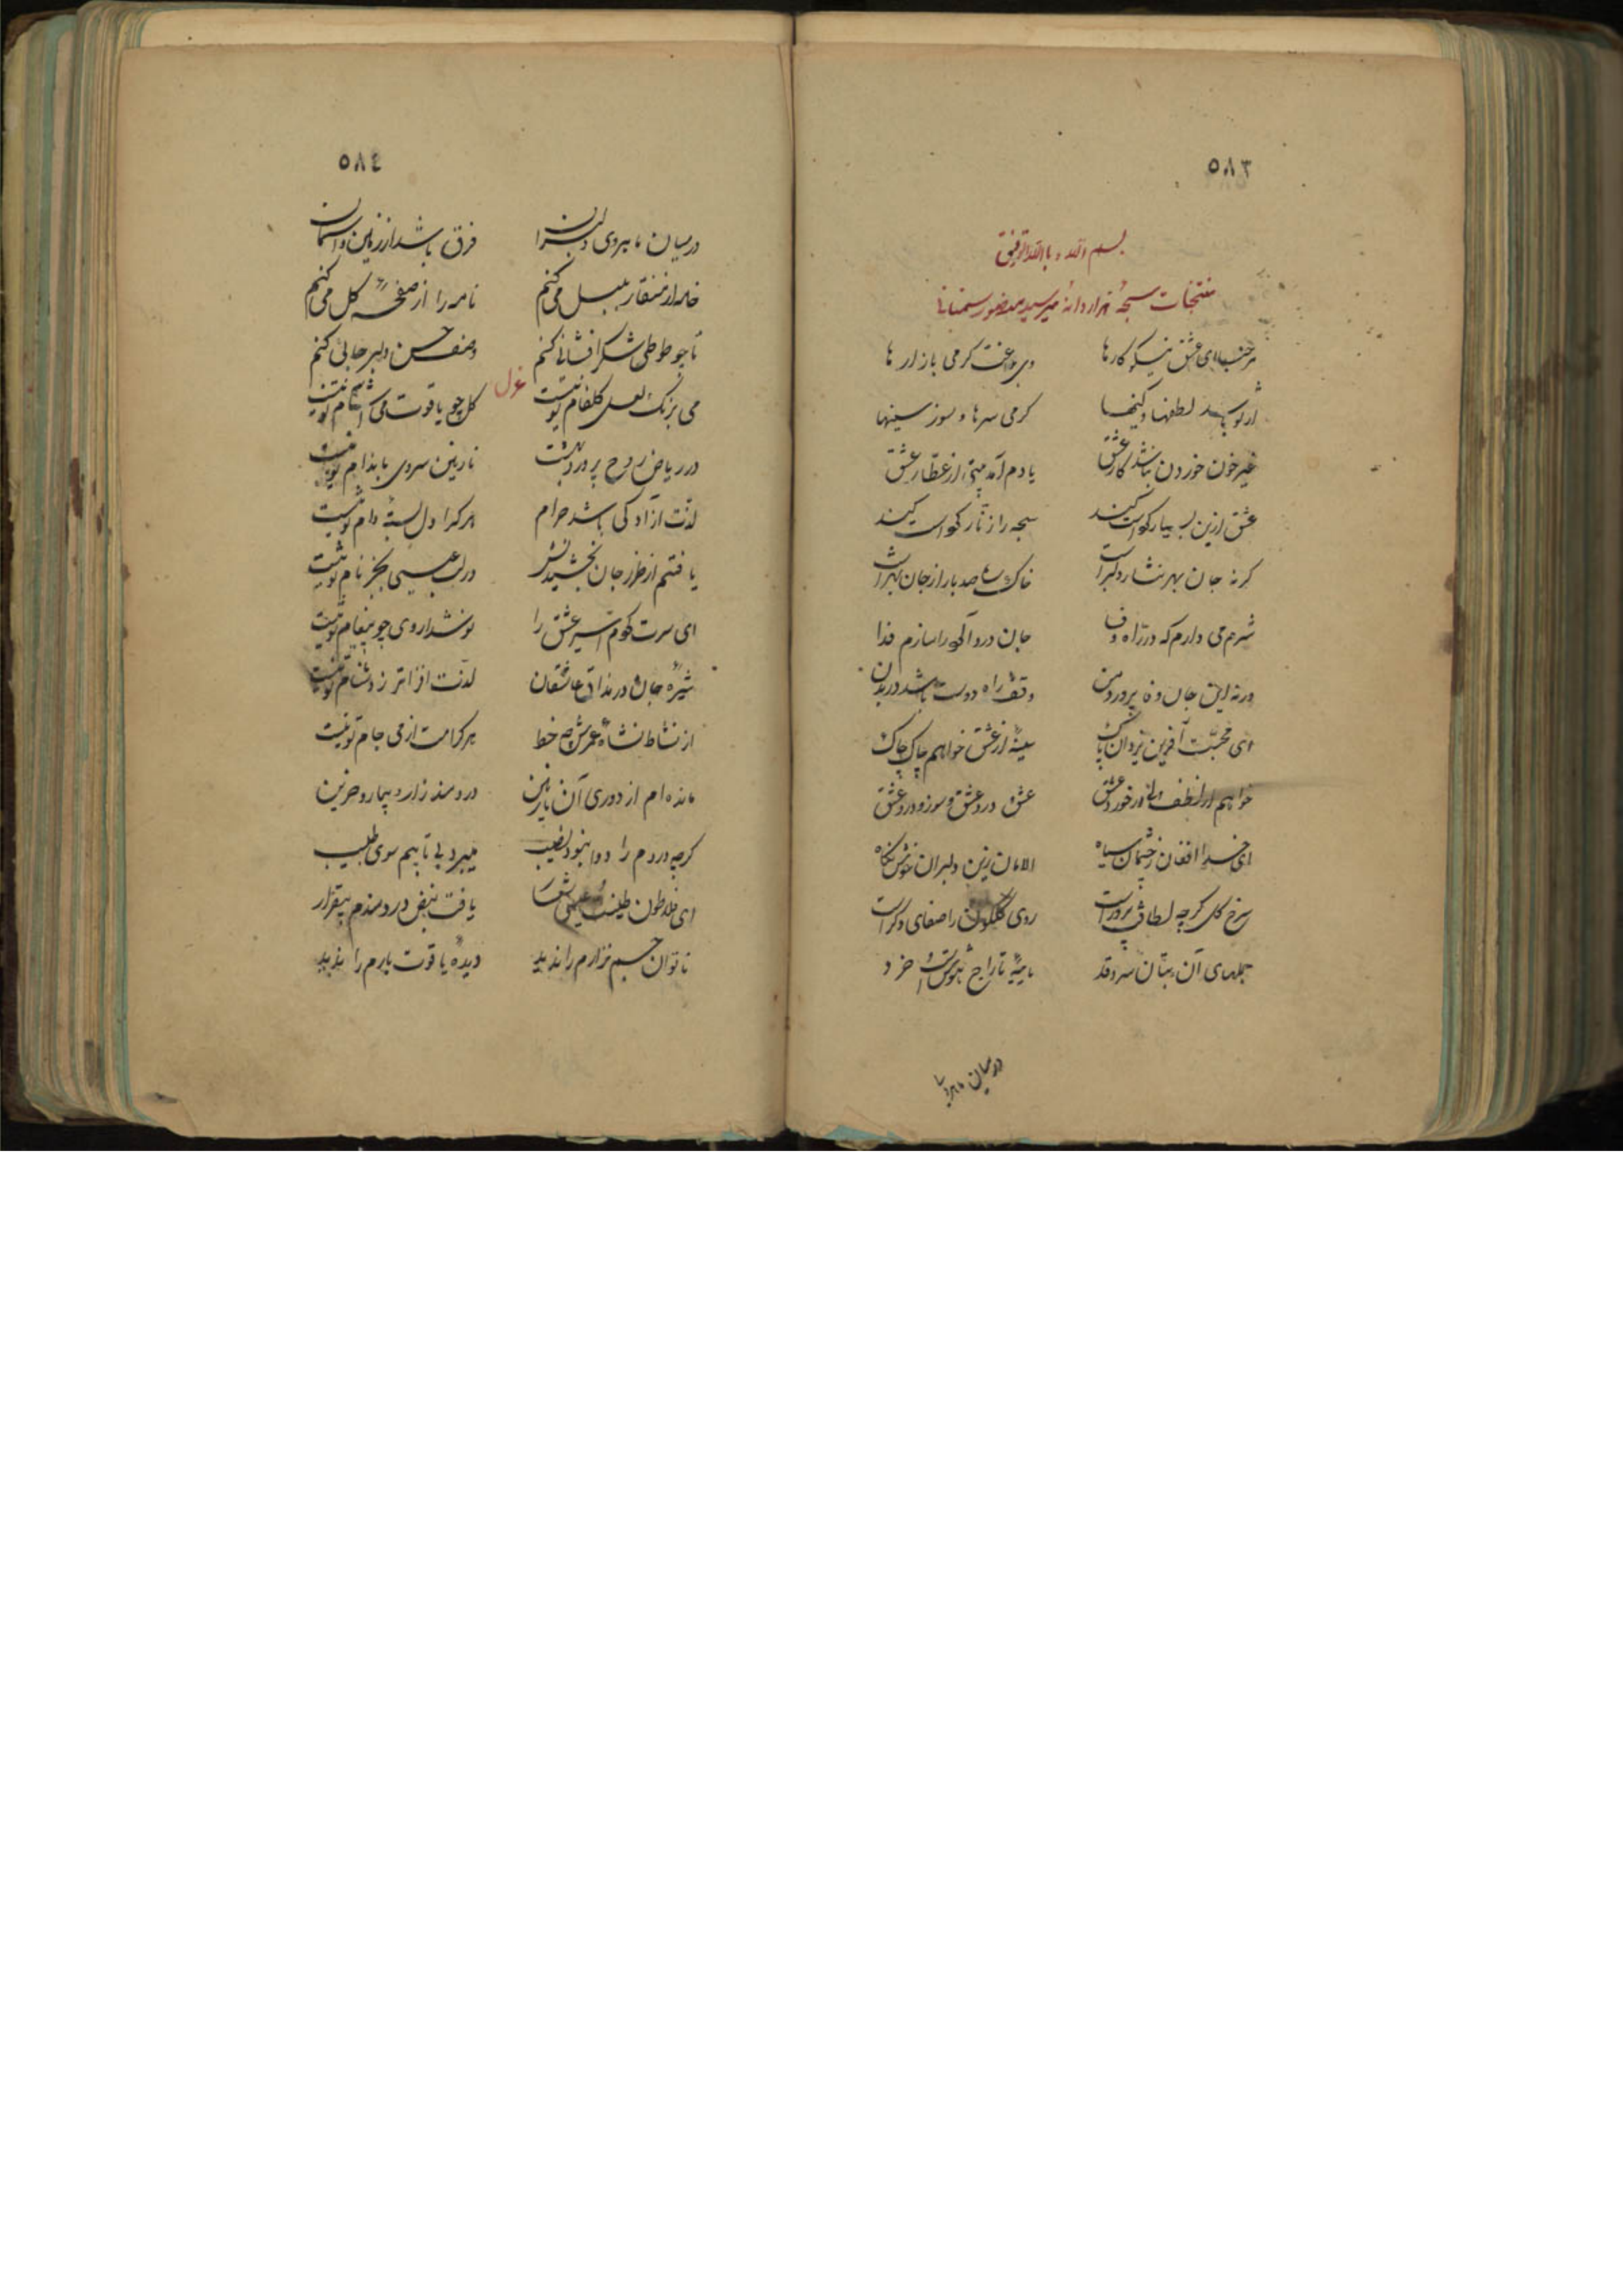 ٥٨٣
بسم الله و بالله التوفیق
منتخبات سبحهٔ هزار دانهٔ میر سید منصور سمنانی
مرحبا ای عشق نیکو کارها وی رواجت کرمی بازارها
از تو باشد لطفها و کینها کرمی سرها و سوز سینها
غیر خون خوردن نباشد کار عشق یادم آمد بیتی از عطار عشق
عشق ازین بسیار کردست و کند سبحه را زنار کردست و کند
کرنه جان بهر نثار دلبراست خاک صد بار از جان بهتراست
شرم می دارم که در راه وفا جان درد آلود را سازم فدا
ورنه این جان وه پرورد من وقف راه دوست باشد در بدن
ای محبت آفرین یزدان پاک سینهٔ از عشق خواهم چاک چاک
خواهم از لطف در خورد عشق عشق درد عشق و سوز و درد عشق
ای خدا افغان ز چشمان سیاه الامان زین دلبران خوش نکاه
سرخ کل کرچه لطافت پرور است روی کلکون را صفای دکر است
جملهای آن بتان سرو قد مایهٔ تاراج هوش است و خرد
در میان ماهرو با
٥٨٤
در میان ماهروی دلبران فرق باشد از زمین و آسمان
خامه از منقار بلبل می کنم نامه را از صفحهٔ کل می کنم
تا چو طوطی شکر افشانی کنم وصف حسن دلبر جانی کنم
غزل
می برنک لعل کلفام تو نیست کل چو یاقوت می آشام تو نیست
در ریاض روح پرور بهشت نازنین سروی باندام تو نیست
لذت آزادکی باشد حرام هر کرا دل بستهٔ دام تو نیست
یافتم از طرز جان بخشیدنش در لب عیسی بجز نام تو نیست
ای سرت کردم اسیر عشق را نوشداروی چو پیغام تو نیست
شیرهٔ جان در مذاق عاشقان لذت افزاتر ز دشنام تو نیست
از نشاط نشاهٔ عمرش چه خط هر کرا مست از می جام تو نیست
مانده ام از دوری آن نازنین دردمند زار و بیمار و حزین
کرچه دردم را دوا نبود نصیب میبرد بی تابیم سوی طبیب
ای فلاطون طینت عیسی شعار یافت نبض دردمندم بیقرار
ناتوان جسم نزارم را ندید دیدهٔ یاقوت بارم را ندید